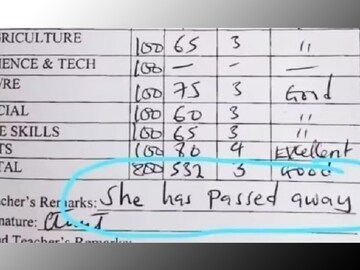 GRICULTURE 100 65 3 "
IENCE & TECH 100 — — —
URE 100 75 3 Good
CIAL 100 60 3 "
E SKILLS 100 65 3 "
TS 100 80 4 Excellent
TAL 800 532 3 Good
cher's Remarks: She has passed away
nature:
d Teacher's Remarks: